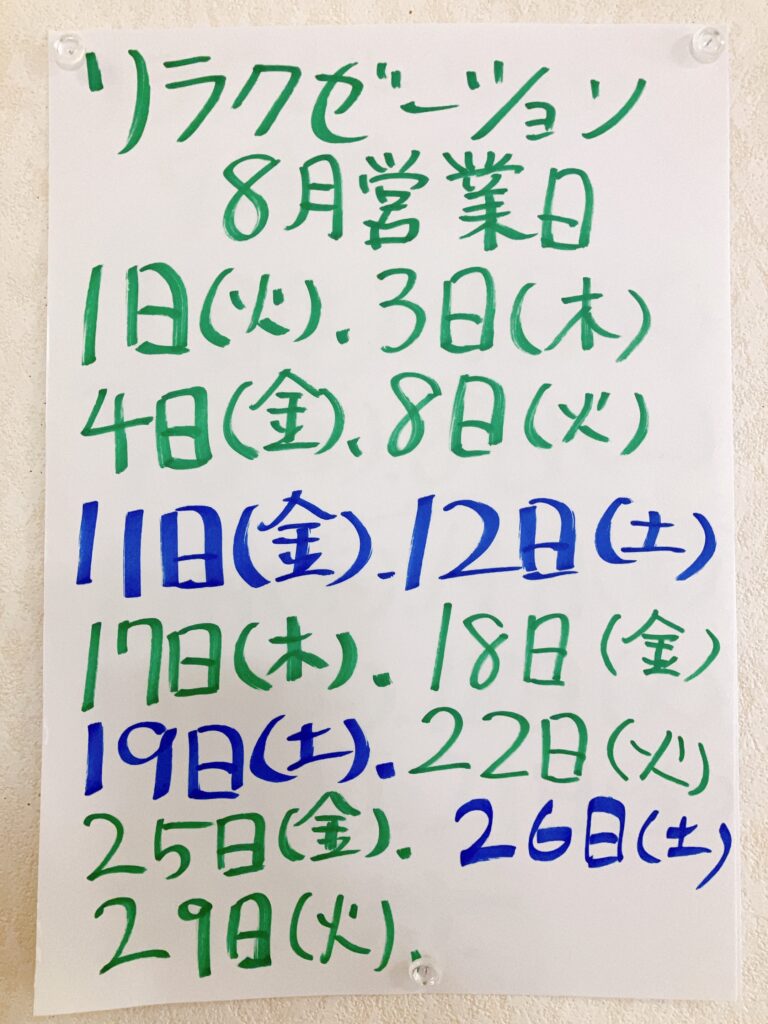 リラクゼーション
8月営業日
1日(火).3日(木)
4日(金)、8日(火)
11日(金).12日(土)
17日(木).18日(金)
19日(土).22日(火)
25日(金).26日(土)
29日(火).